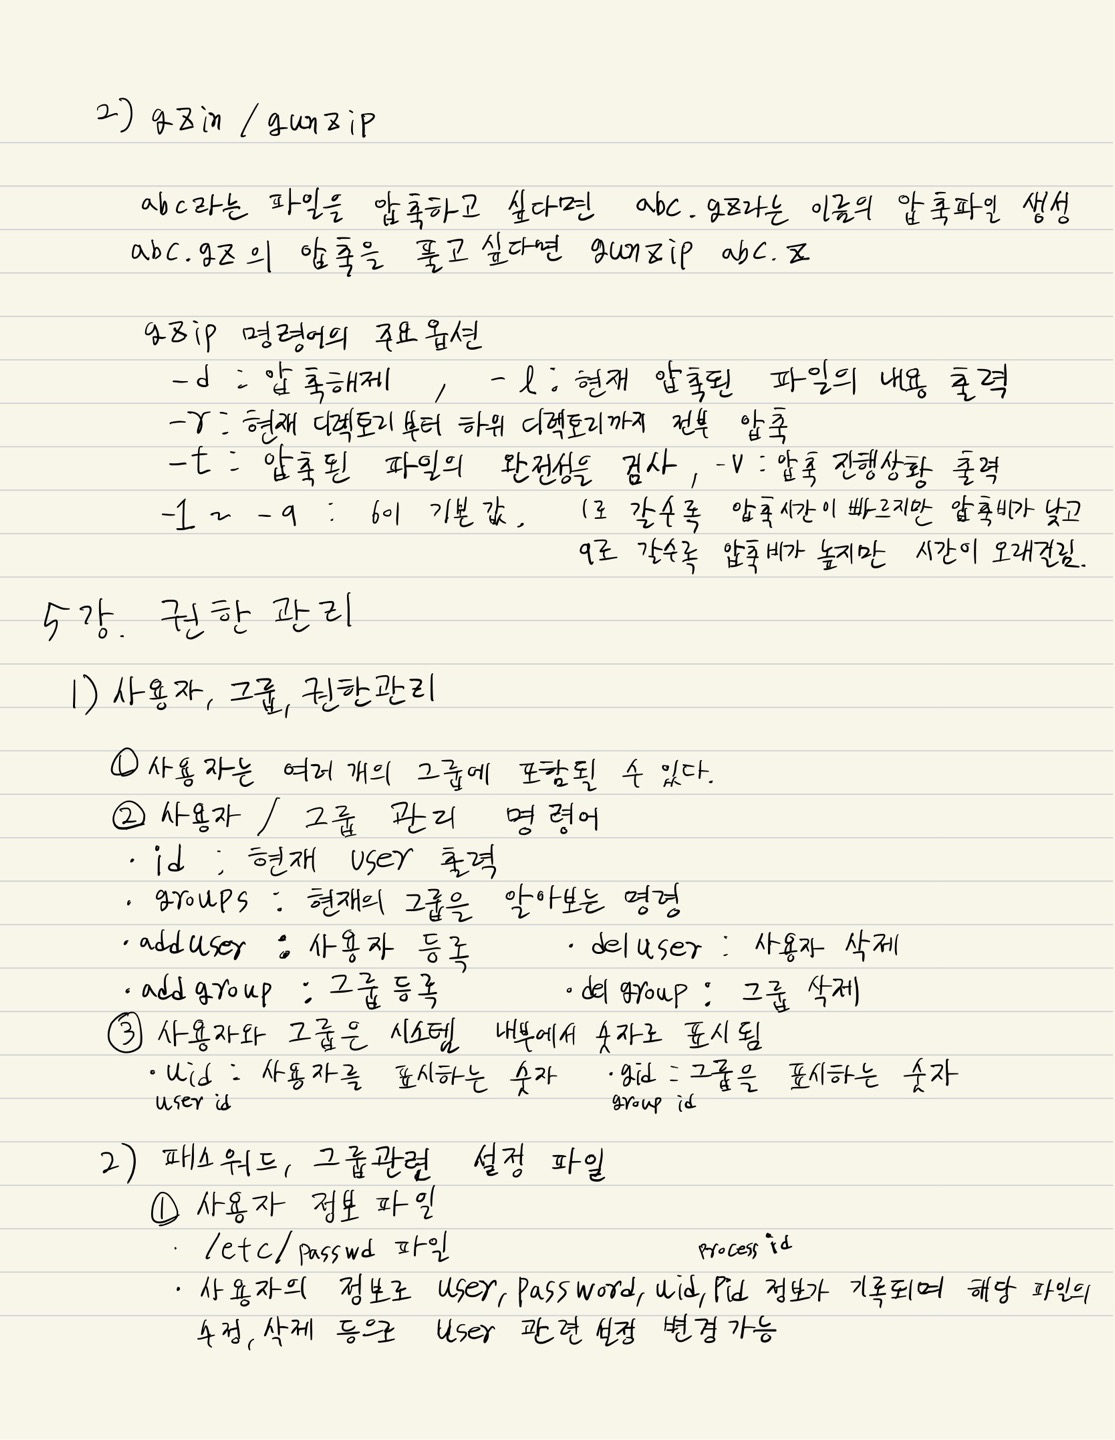 2) gzin / gunzip
abc라는 파일을 압축하고 싶다면 abc.gz라는 이름의 압축파일 생성
abc.gz의 압축을 풀고싶다면 gunzip abc.z
gzip 명령어의 주요옵션
-d : 압축해제 , -l : 현재 압축된 파일의 내용 출력
-r : 현재 디렉토리부터 하위 디렉토리까지 전부 압축
-t : 압축된 파일의 완전성을 검사, -v : 압축 진행상황 출력
-1 ~ -9 : 6이 기본값. 1로 갈수록 압축시간이 빠르지만 압축비가 낮고
9로 갈수록 압축비가 높지만 시간이 오래걸림.
5강. 권한관리
1) 사용자, 그룹, 권한관리
① 사용자는 여러개의 그룹에 포함될 수 있다.
② 사용자 / 그룹 관리 명령어
· id : 현재 user 출력
· groups : 현재의 그룹을 알아보는 명령
· adduser : 사용자 등록 · deluser : 사용자 삭제
· addgroup : 그룹등록 · delgroup : 그룹 삭제
③ 사용자와 그룹은 시스템 내부에서 숫자로 표시됨
· uid : 사용자를 표시하는 숫자 · gid : 그룹을 표시하는 숫자
user id group id
2) 패스워드, 그룹관련 설정 파일
① 사용자 정보파일
· /etc/passwd 파일 process id
· 사용자의 정보로 user, password, uid, pid 정보가 기록되며 해당 파일의
수정, 삭제 등으로 user 관련 설정 변경가능